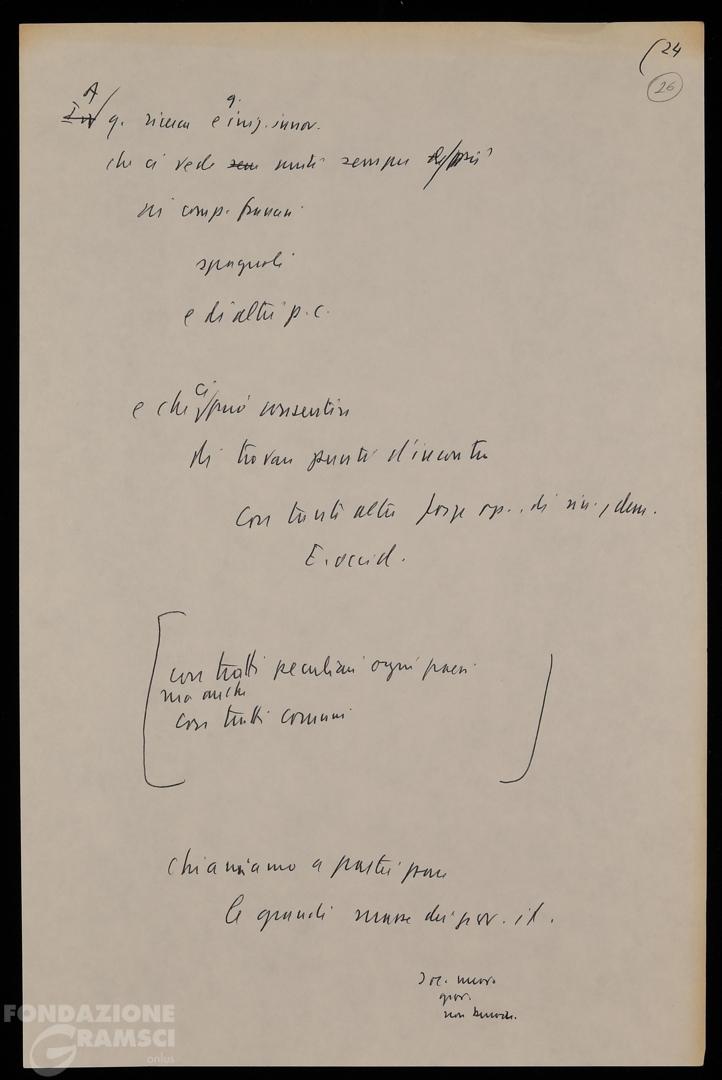 (24
26
A q. ricerca e q. iniz. innov.
che ci vede uniti sempre più
ai comp. francesi
spagnoli
e di altri p.c.
e che ci può consentire
di trovare punti d'incontro
con tante altre forze op., di sin., dem.
E. occid.
con tratti peculiari ogni paese
ma anche
con tratti comuni
chiamiamo a partecipare
le grandi masse dei giov. it.
soc. nuova
giov.
non
FONDAZIONE
GRAMSCI
onlus